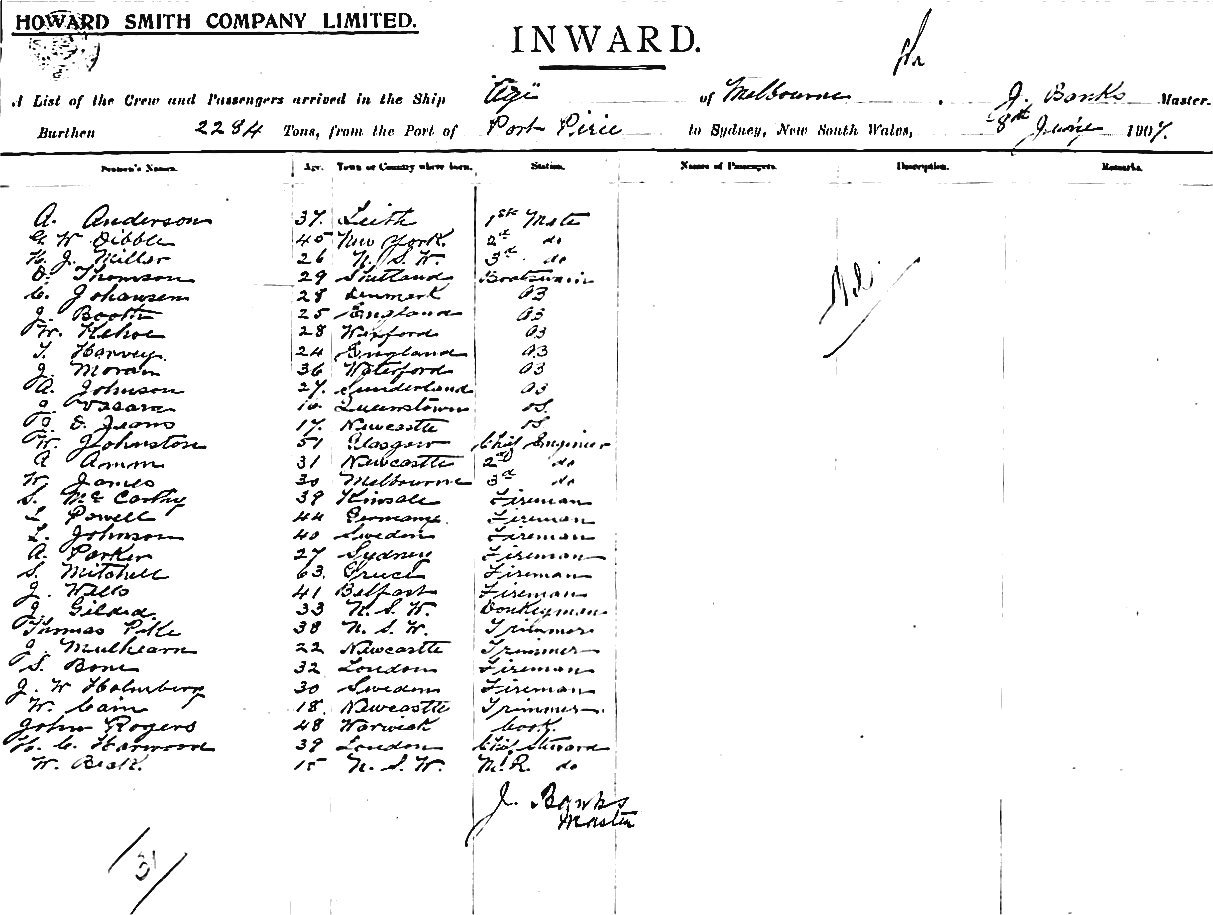 HOWARD SMITH COMPANY LIMITED.
INWARD.
A List of the Crew and Passengers arrived in the Ship Age of Melbourne, J. Banks Master.
Burthen 2284 Tons, from the Port of Port Pirie to Sydney, New South Wales, 8th June 1907.
Seamen's Names. Age. Town or Country where born. Station. Names of Passengers. Description. Remarks.
A. Anderson 37. Leith 1st Mate
G. W Dibble 45 New York. 2nd do
H. J. Miller 26 N. S. W. 3rd do
D. Thomson 29 Shetland Boatswain
C. Johansen 28 Denmark AB
J. Booth 25 England AB
W. Kehoe 28 Wexford AB
T. Harvey. 24 England AB
J. Moran 36 Waterford AB
A. Johnson 27. Sunderland AB
Queenstown OS.
17. Newcastle OS
W. Johnston 51 Glasgow Chief Engineer
A Amm 31 Newcastle 2nd do
W. James 30 Melbourne 3rd do
S. McCarthy 39 Kinsale Fireman
Powell 44 Germany. Fireman
Johnson 40 Sweden Fireman
A. Parker 27 Sydney Fireman
S. Mitchell 63. Greece Fireman
J. Wells 41 Belfast Fireman
J. 33 N. S. W. Donkeyman
Thomas Pike 38 N. S. W. Trimmer
J. Mulhearn 22 Newcastle Trimmer
S. Bone 32 London Fireman
J. W Holmberg 30 Sweden Fireman
W. Cain 18. Newcastle Trimmer
John Rogers 48 Warwick Cook.
H. C. Harwood 39 London Chief Steward
W. Beck. 15 N. S. W. M. R. do
Nil
J. Banks
Master
31